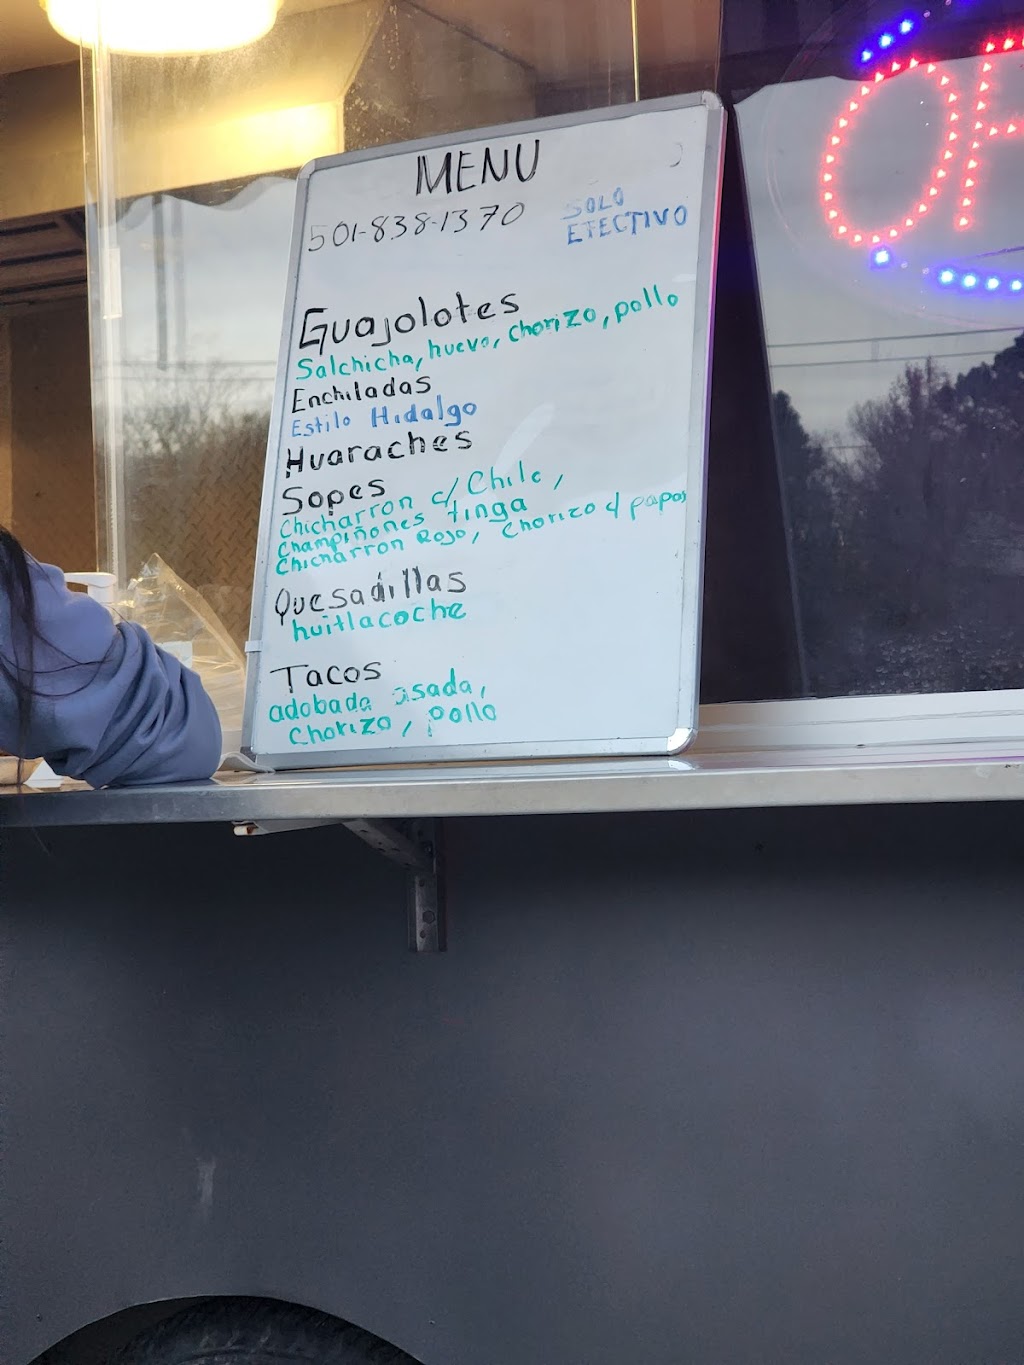 MENU
501-838-1370
SOLO
EFECTIVO
Guajolotes
Salchicha, huevo, chorizo, pollo
Enchiladas
Estilo Hidalgo
Huaraches
Sopes
Chicharron c/ Chile,
Champiñones tinga
Chicharron Rojo, Chorizo c/ papas
Quesadillas
huitlacoche
Tacos
adobada asada,
Chorizo, pollo
OP